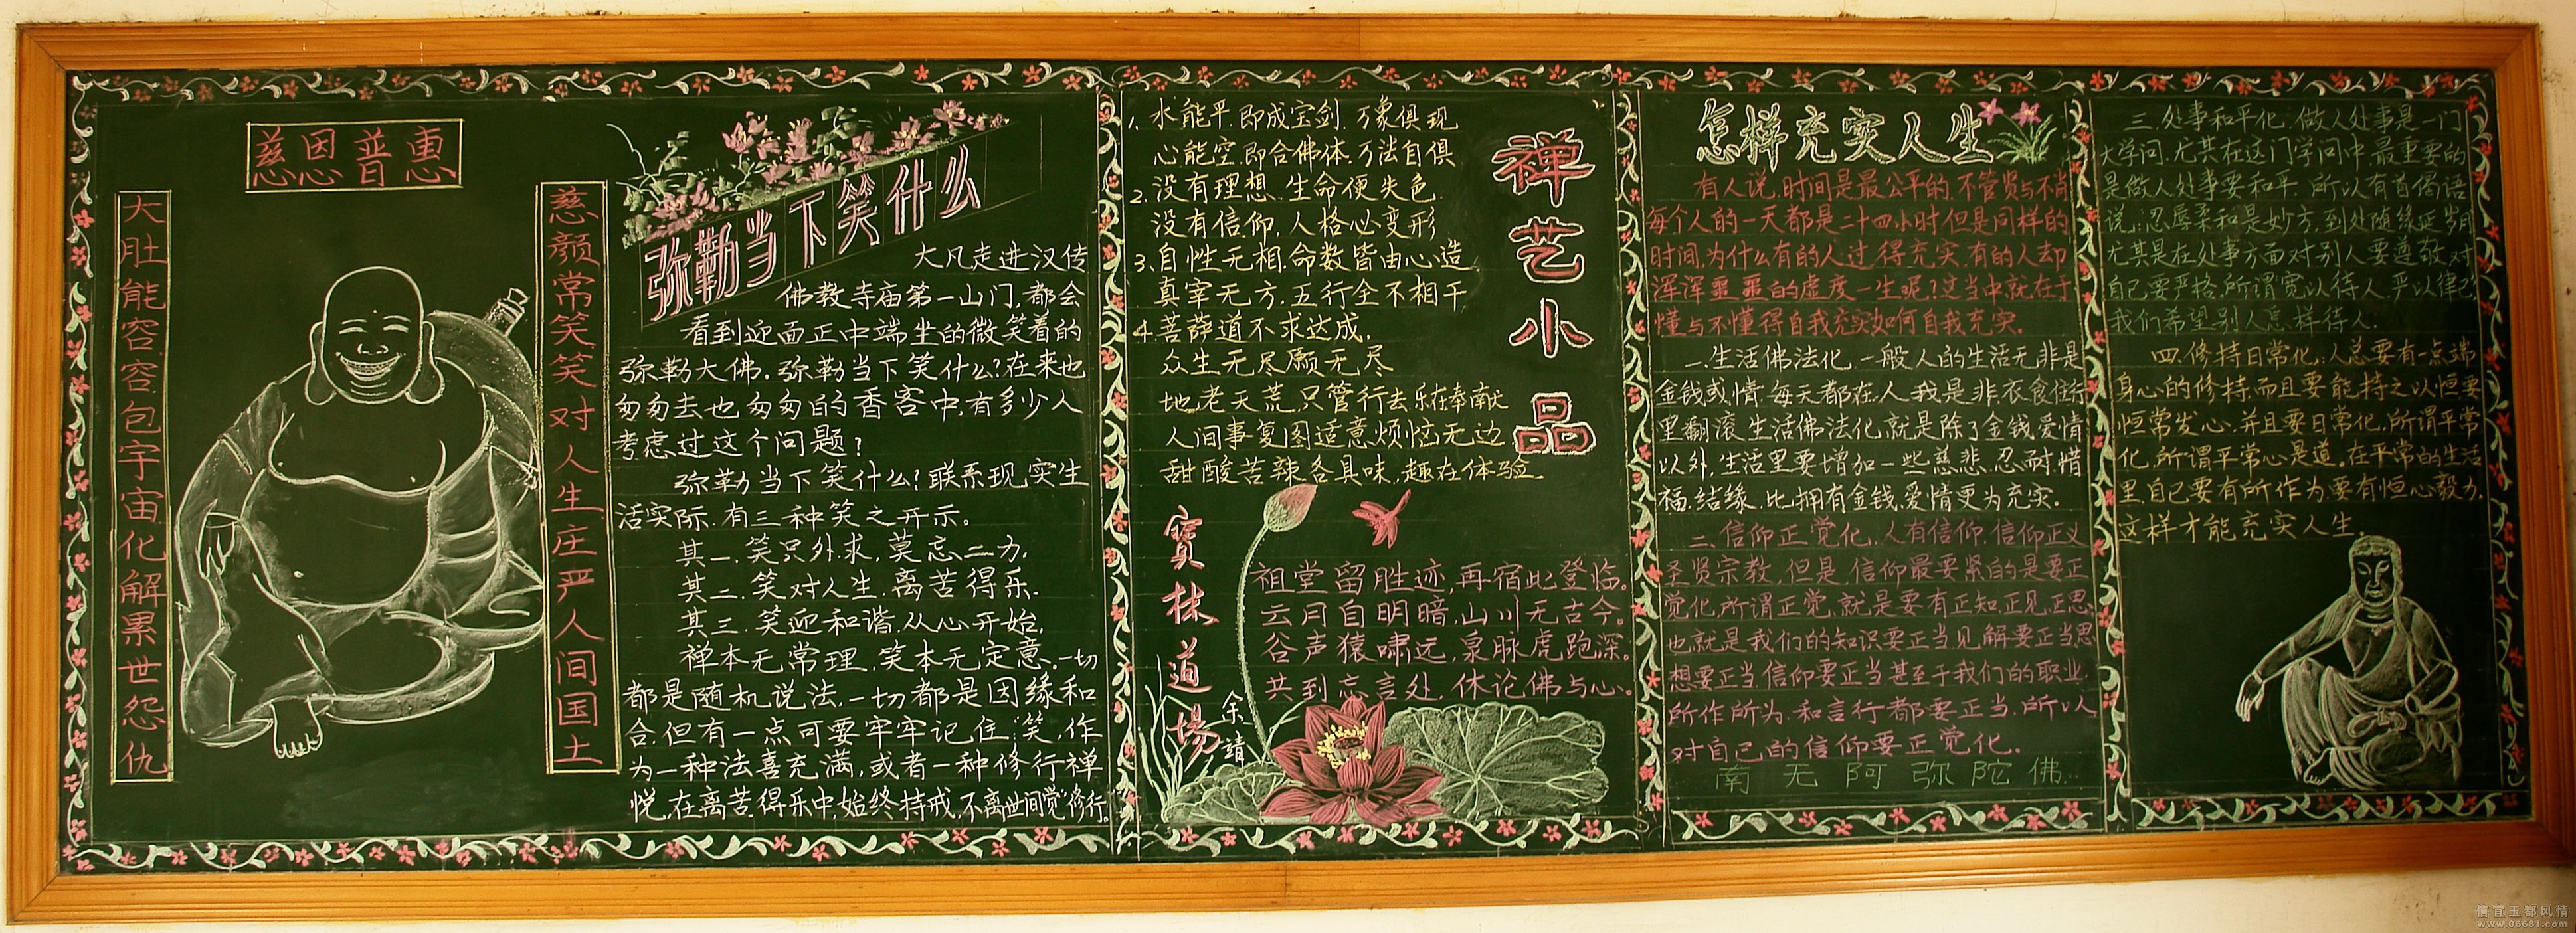 慈因普惠
大肚能容容包宇宙化解累世怨仇
慈颜常笑笑对人生庄严人间国土
弥勒当下笑什么
大凡走进汉传
佛教寺庙第一山门,都会
看到迎面正中端坐的微笑着的
弥勒大佛。弥勒当下笑什么?在来也
匆匆去也匆匆的香客中,有多少人
考虑过这个问题?
弥勒当下笑什么?联系现实生
活实际,有三种笑之开示。
其一、笑只外求,莫忘二力.
其二、笑对人生,离苦得乐.
其三、笑迎和谐,从心开始,
禅本无常理,笑本无定意。一切
都是随机说法,一切都是因缘和
合.但有一点可要牢牢记住:笑,作
为一种法喜充满,或者一种修行禅
悦,在离苦得乐中,始终持戒,不离世间觉"修行。
禅艺小品
1、水能平.即成宝剑.万象俱现
心能空.即合佛体.万法自俱
2、没有理想、生命便失色.
没有信仰,人格心变形
3、自性无相.命数皆由心造.
真宰无方.五行全不相干
4、菩萨道不求达成,
众生无尽愿无尽
地老天荒.只管行去乐在奉献
人间事复图适意烦恼无边
甜酸苦辣各具味,趣在体验
寳林道場
余靖
祖堂留胜迹,再宿此登临。
云月自明暗,山川无古今。
谷声猿啸远,泉脉虎跑深。
共到忘言处,休论佛与心。
怎样充实人生
有人说,时间是最公平的,不管贤与不肖
每个人的一天都是二十四小时但是同样的
时间,为什么有的人过得充实,有的人却
浑浑噩噩的虚度一生呢?这当中就在于
懂与不懂得自我充实如何自我充实.
一.生活佛法化.一般人的生活无非是
金钱或情.每天都在人我是非.衣食住行
里翻滚.生活佛法化,就是除了金钱爱情
以外,生活里要增加一些慈悲,忍耐,惜
福.结缘.比拥有金钱.爱情更为充实.
二.信仰正觉化.人有信仰.信仰正义
圣贤宗教,但是,信仰最要紧的是要正
觉化,所谓正觉,就是要有正知正见正思,
也就是我们的知识要正当见解要正当思
想要正当信仰要正当甚至于我们的职业,
所作所为.和言行都要正当.所以
对自己的信仰要正觉化.
南无阿弥陀佛
三.处事和平化.做人处事是一门
大学问.尤其在这门学问中.最重要的
是做人处事要和平.所以有首偈语
说:忍辱柔和是妙方,到处随缘延岁月
尤其是在处事方面对别人要遵敬.对
自己要严格,所谓宽以待人,严以律己,
我们希望别人怎样待人.
四.修持日常化.人总要有一点端
身心的修持,而且要能持之以恒要
恒常发心.并且要日常化,所谓平常
化,所谓平常心是道。在平常的生活
里,自己要有所作为,要有恒心毅力,
这样才能充实人生.
信宜玉都风情
www.06681.com